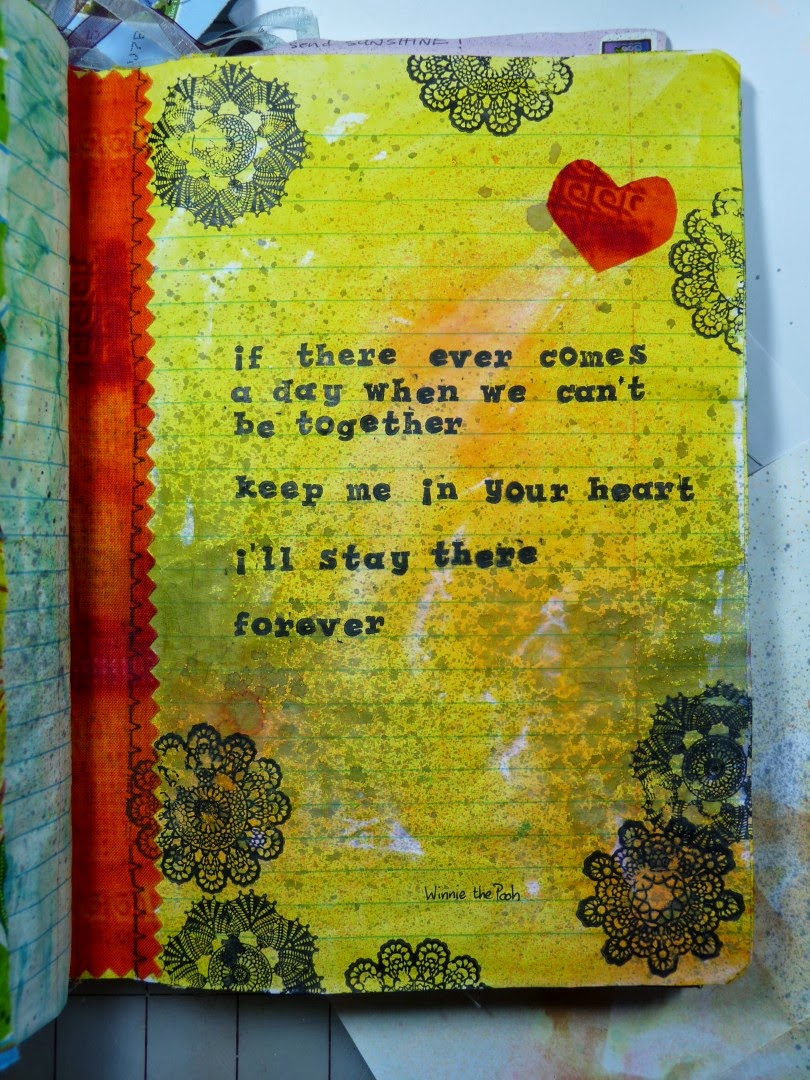 send SUNSHINE!
if there ever comes
a day when we can't
be together
keep me in your heart
i'll stay there
forever
Winnie the Pooh